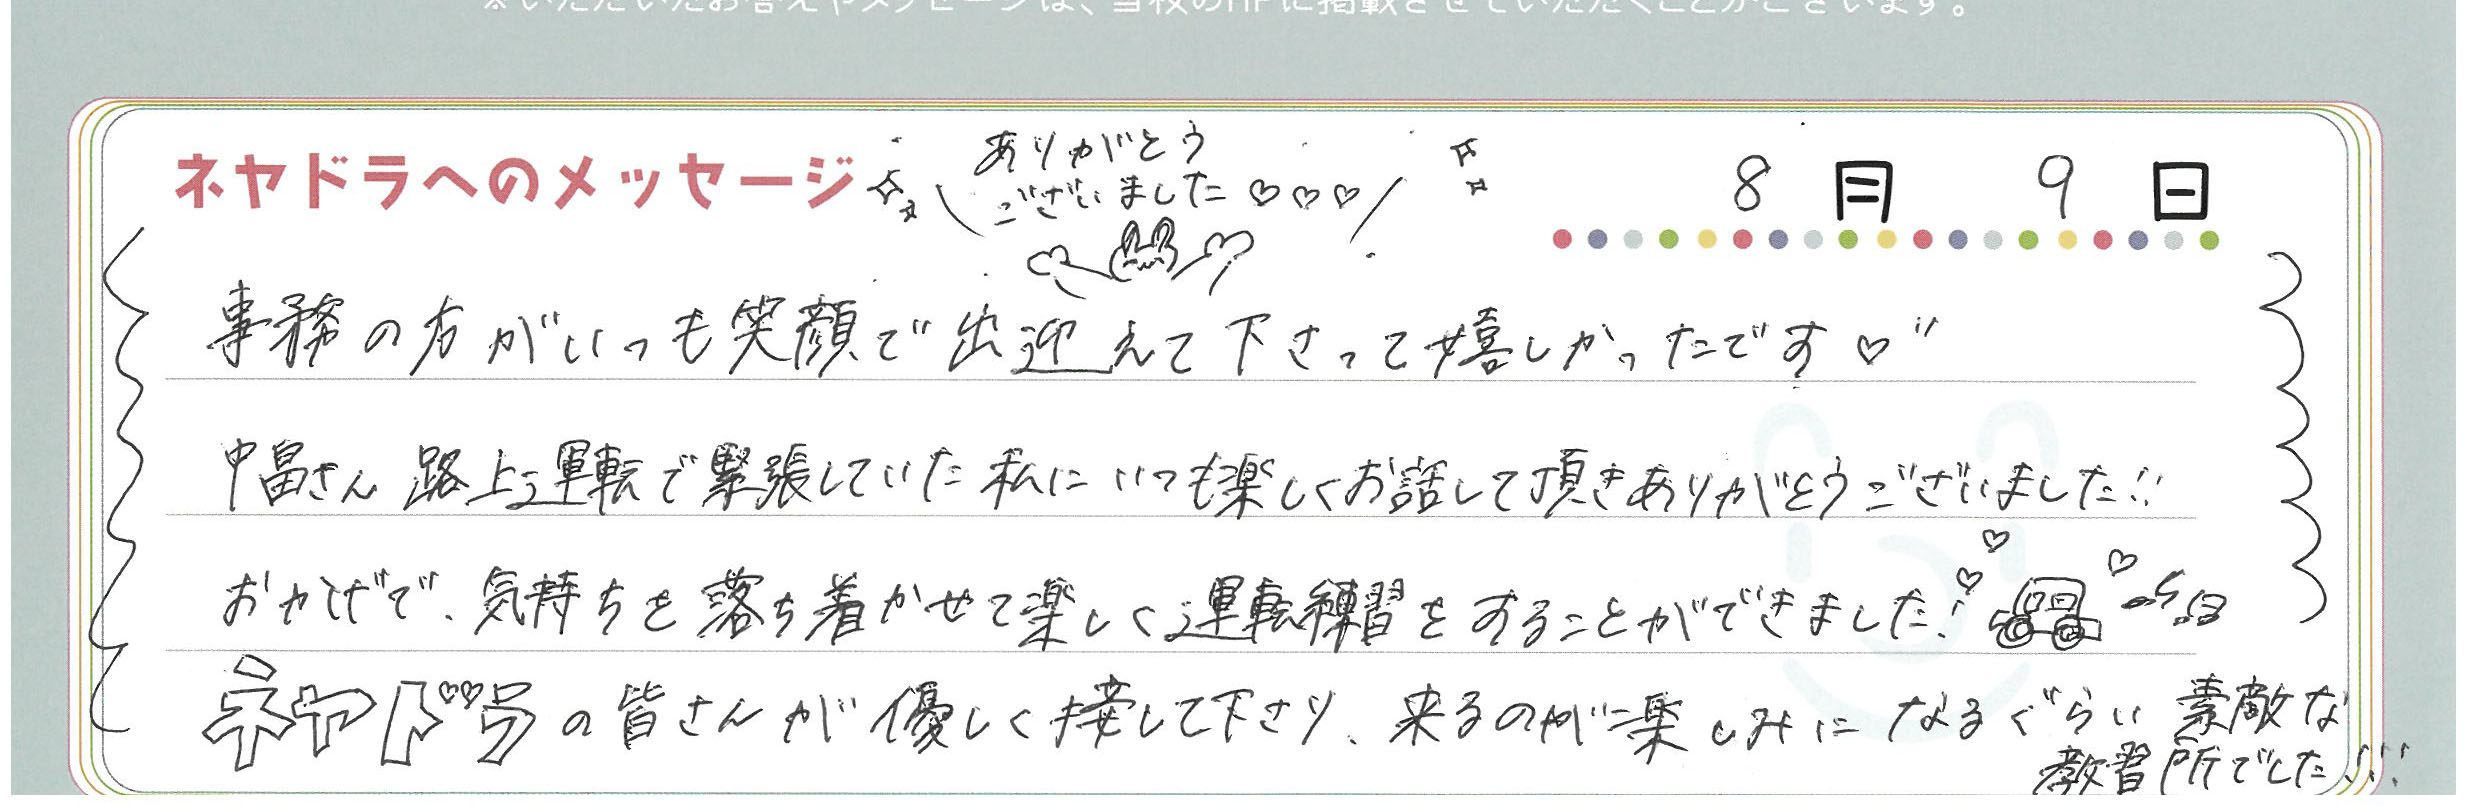 ※いただいたお答えやメッセージは、当校のHPに掲載させていただくことがございます。
ネヤドラへのメッセージ
ありがとう
ございました♡♡♡
8月 9日
事務の方がいつも笑顔で出迎えて下さって嬉しかったです♡"
中畠さん 路上運転で緊張していた私にいつも楽しくお話して頂きありがとうございました!!
おかげで、気持ちを落ち着かせて楽しく運転練習をすることができました!
ネヤドラの皆さんが優しく接して下さり、来るのが楽しみになるぐらい素敵な
教習所でした!!!